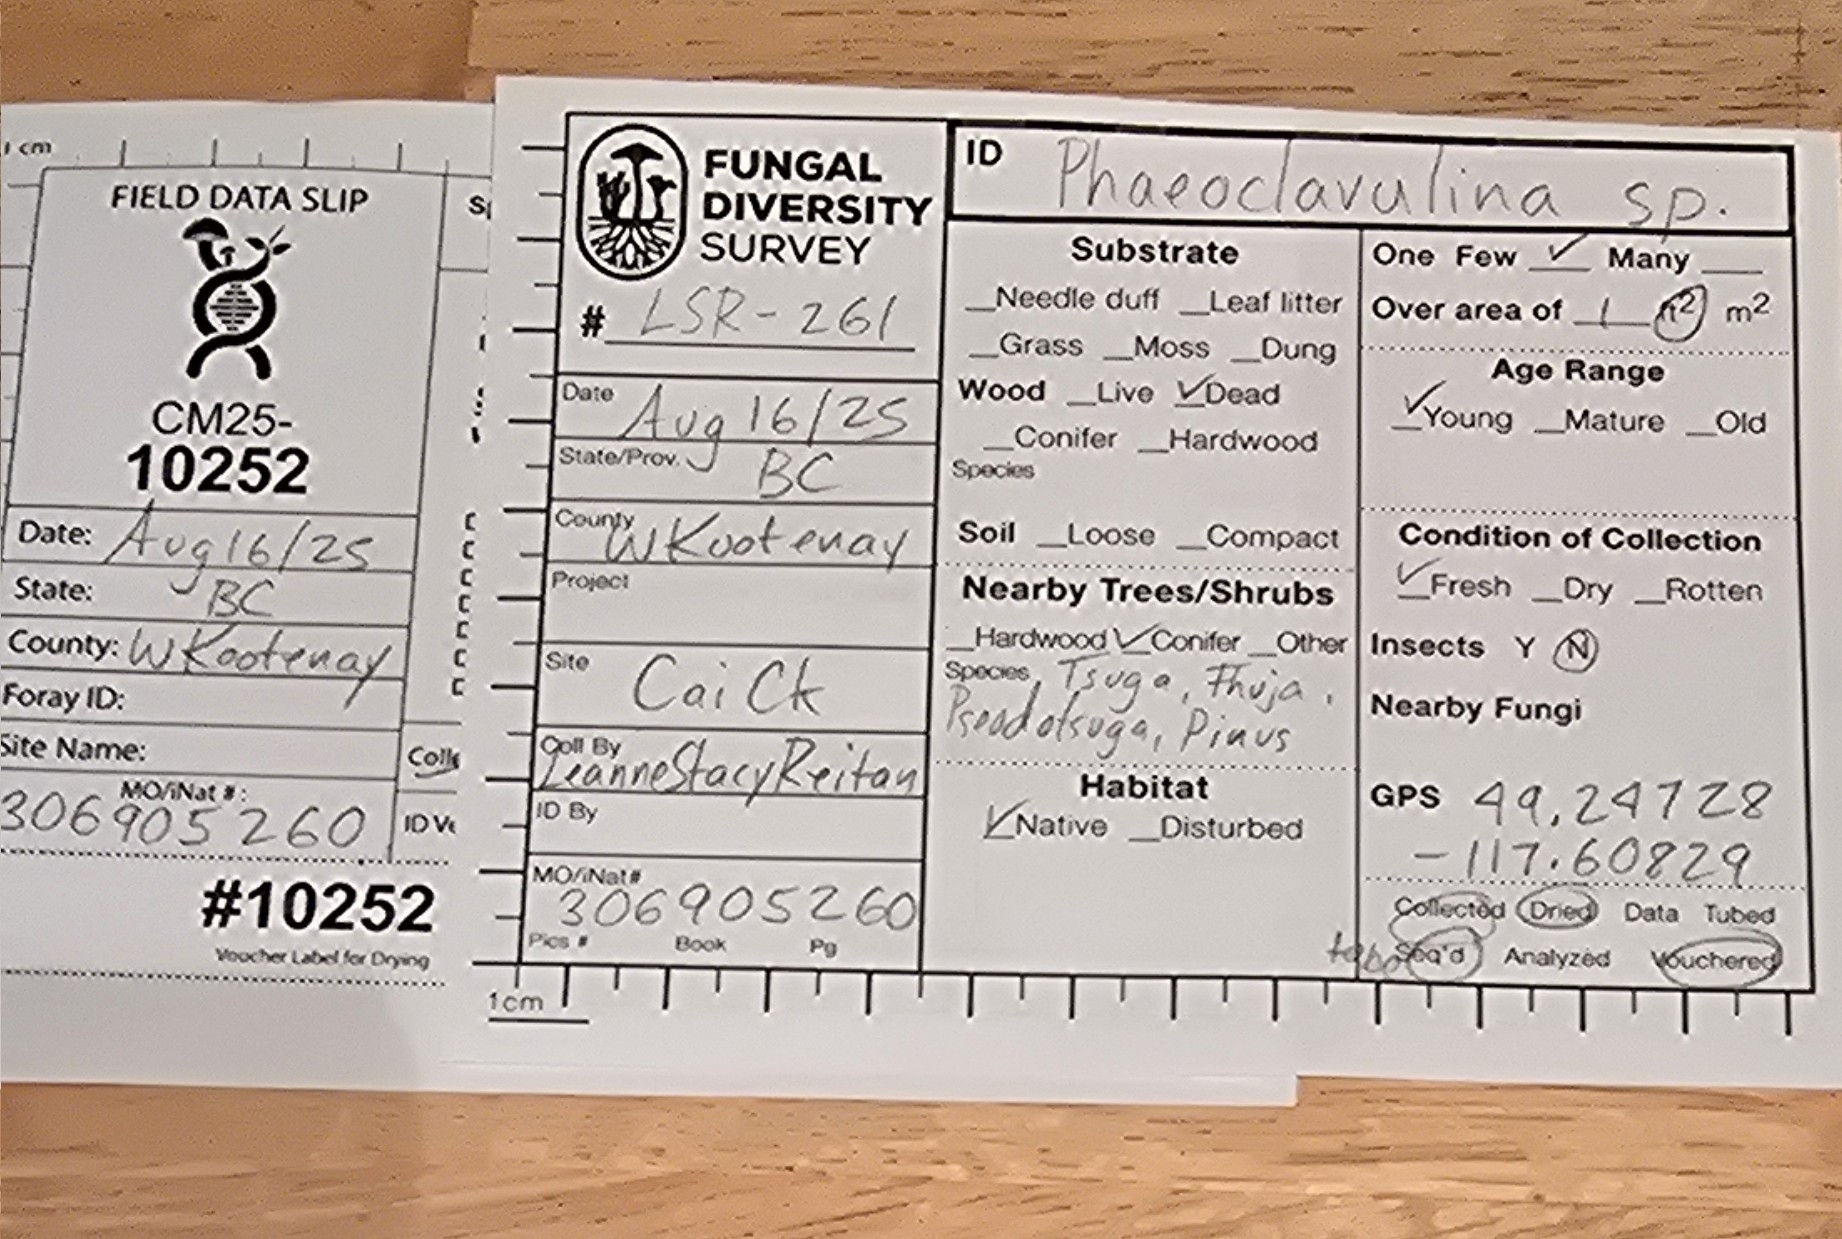 1 cm
FIELD DATA SLIP
CM25-
10252
Date: Aug 16/25
State: BC
County: W Kootenay
Foray ID:
Site Name:
MO/iNat #:
306905260
Colle
ID Ve
#10252
Voucher Label for Drying
FUNGAL
DIVERSITY
SURVEY
# LSR-261
Date Aug 16/25
State/Prov. BC
County W Kootenay
Project
Site Cai Ck
Coll By Leanne Stacy Reitan
ID By
MO/iNat# 306905260
Pics # Book Pg
1cm
ID Phaeoclavulina sp.
Substrate
Needle duff Leaf litter
Grass Moss Dung
Wood Live ✓Dead
Conifer Hardwood
Species
Soil Loose Compact
Nearby Trees/Shrubs
Hardwood ✓Conifer Other
Species Tsuga, Thuja,
Pseudotsuga, Pinus
Habitat
✓Native Disturbed
One Few ✓ Many
Over area of 1 ft2 m2
Age Range
✓Young Mature Old
Condition of Collection
✓Fresh Dry Rotten
Insects Y N
Nearby Fungi
GPS 49.24728
-117.60829
Collected Dried Data Tubed
to be Seq'd Analyzed Vouchered